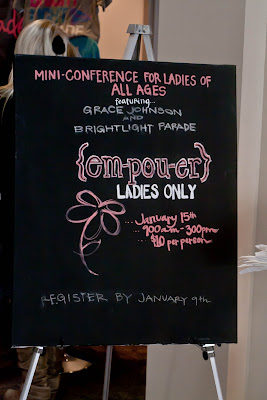 MINI-CONFERENCE FOR LADIES OF
ALL AGES
featuring...
GRACE JOHNSON
AND
BRIGHTLIGHT PARADE
{em·pou·er}
LADIES ONLY
...January 15th
...900am-300pm
...$10 per person
REGISTER BY JANUARY 9th